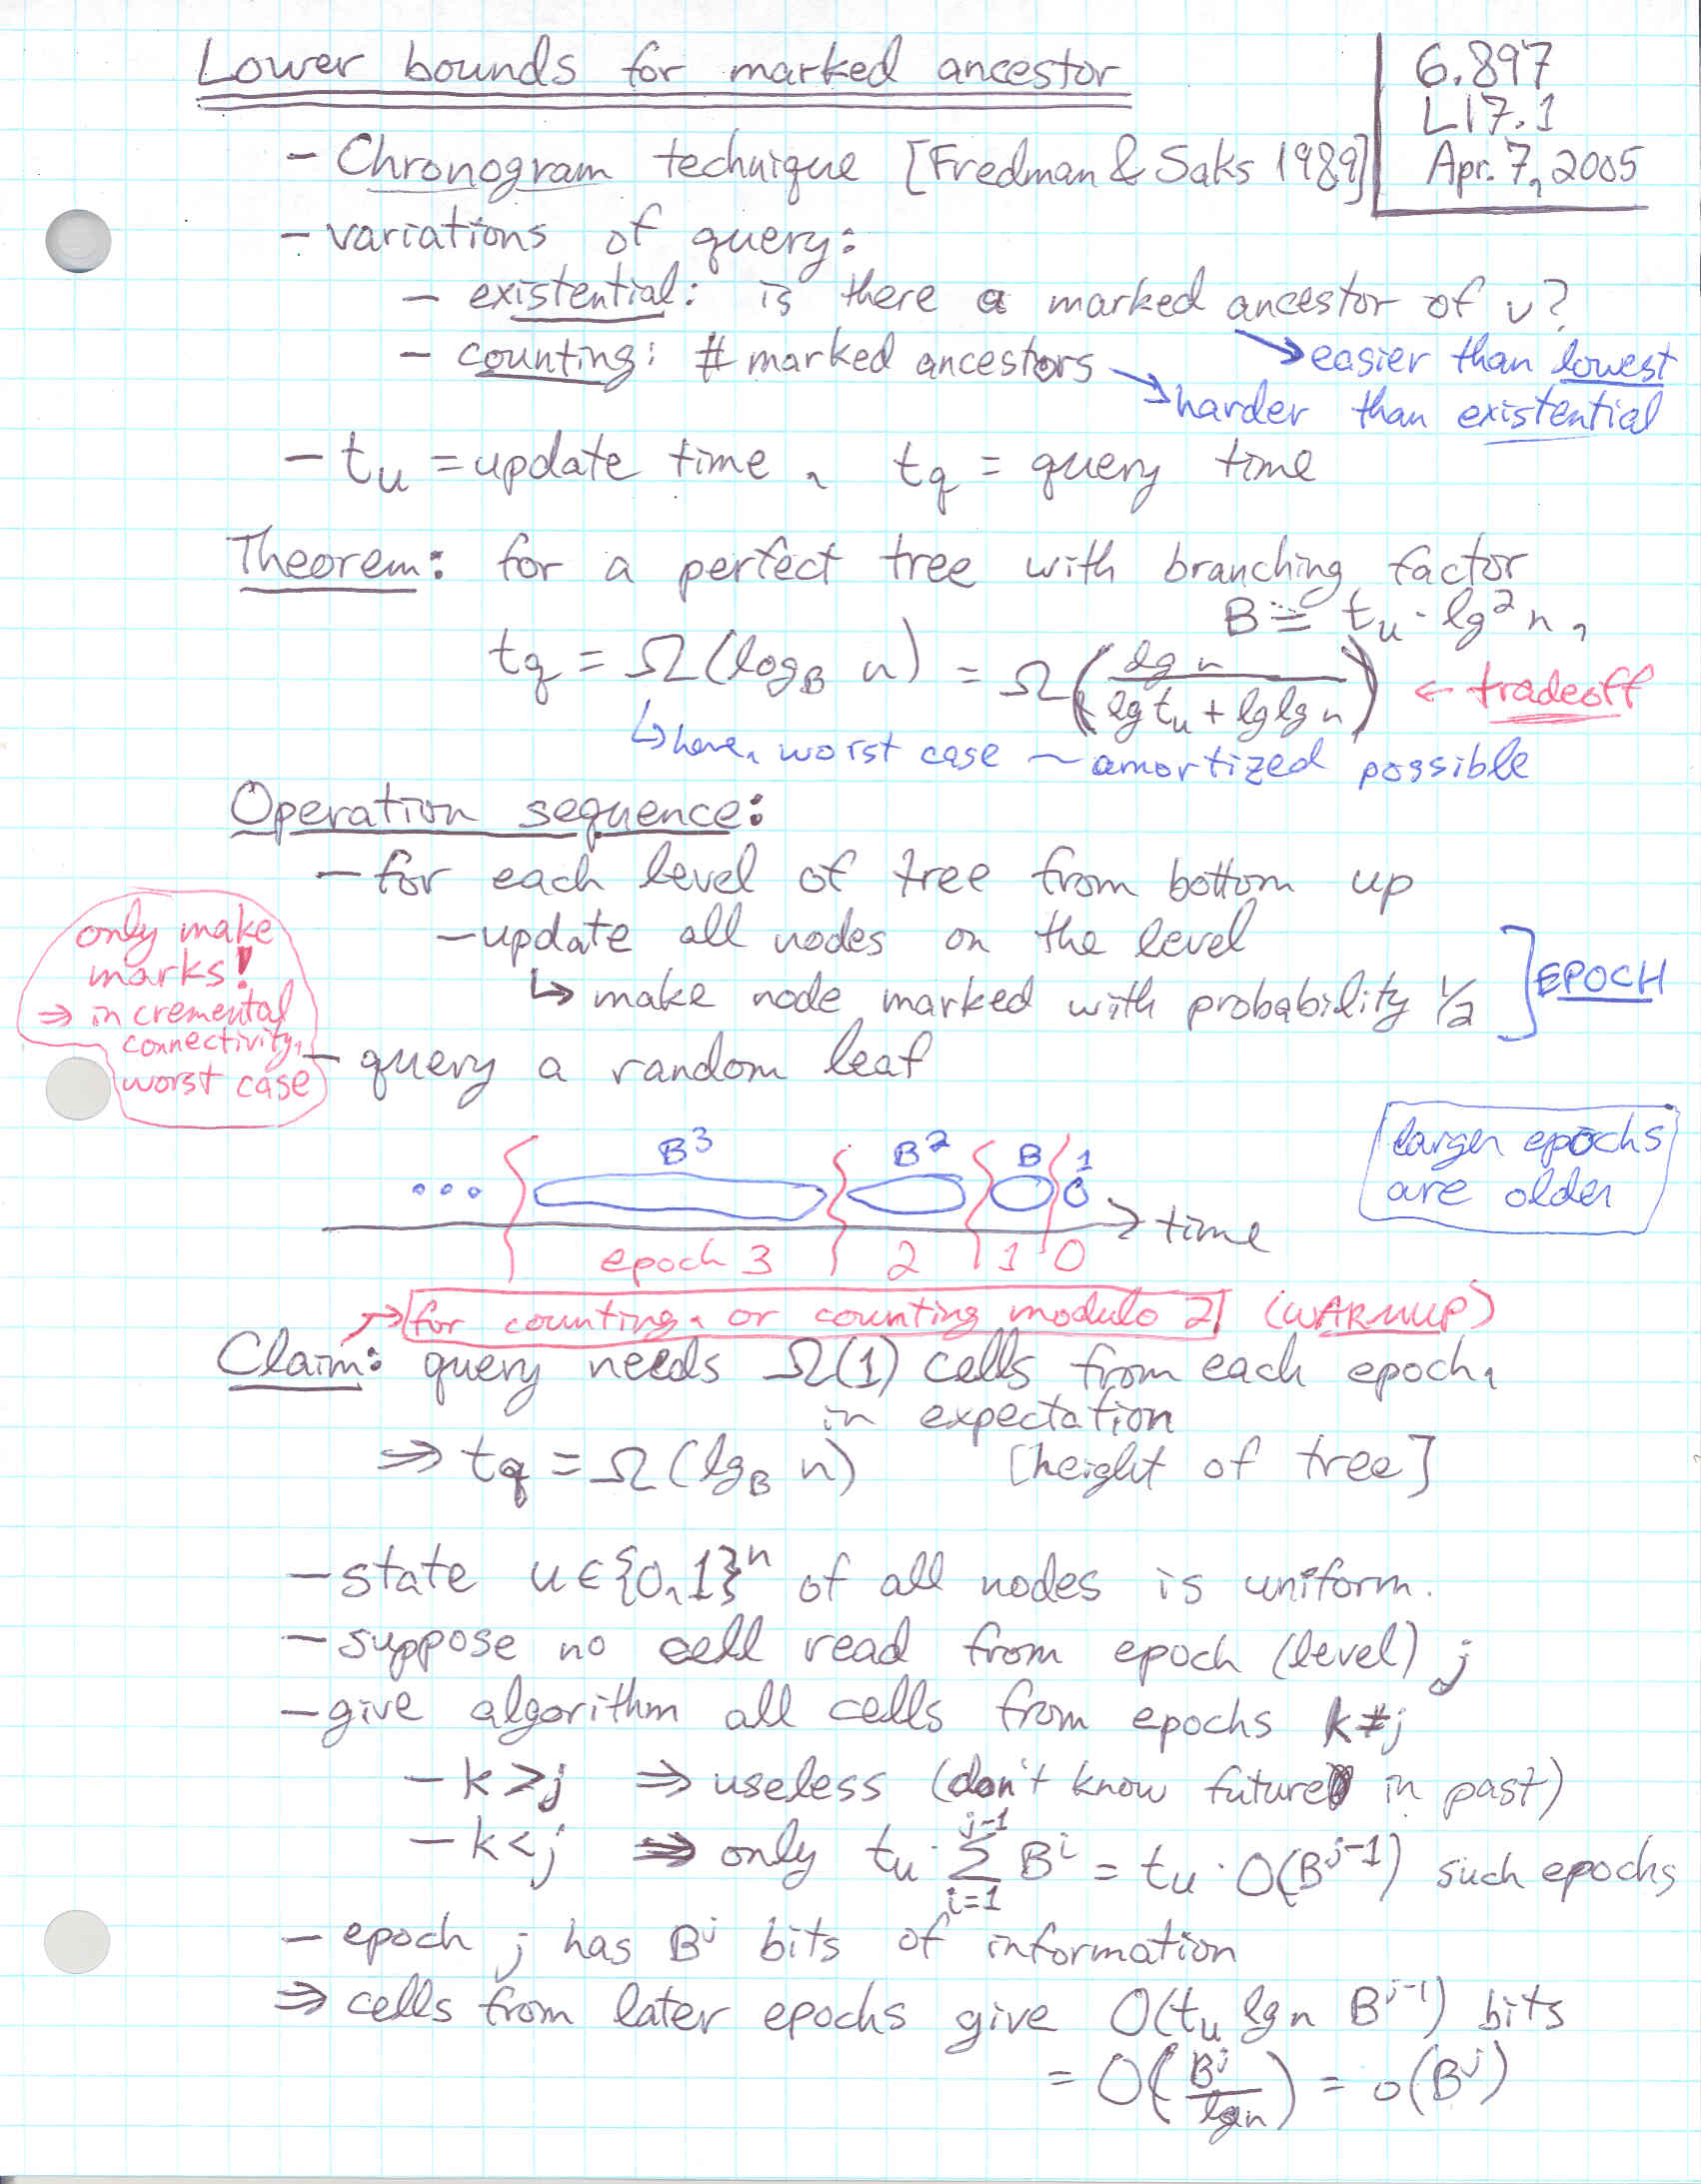 Lower bounds for marked ancestor
6.897
L17.1
Apr. 7, 2005
- Chronogram technique [Fredman & Saks 1989]
- variations of query:
- existential: is there a marked ancestor of v?
→ easier than lowest
- counting: # marked ancestors
→ harder than existential
- t_u = update time, t_q = query time
Theorem: for a perfect tree with branching factor
B ≐ t_u · lg² n,
t_q = Ω(log_B n) = Ω(lg n / (lg t_u + lg lg n)) ← tradeoff
↳ here, worst case ~ amortized possible
Operation sequence:
- for each level of tree from bottom up
- update all nodes on the level
↳ make node marked with probability 1/2
] EPOCH
only make
marks!
⇒ incremental
connectivity,
worst case
- query a random leaf
larger epochs
are older
... B³ B² B 1
→ time
epoch 3 2 1 0
→ for counting, or counting modulo 2 (WARMUP)
Claim: query needs Ω(1) cells from each epoch,
in expectation
⇒ t_q = Ω(lg_B n) [height of tree]
- state u ∈ {0,1}ⁿ of all nodes is uniform.
- suppose no cell read from epoch (level) j
- give algorithm all cells from epochs k≠j
- k > j ⇒ useless (don't know future in past)
- k < j ⇒ only t_u · Σ_{i=1}^{j-1} B^i = t_u · O(B^{j-1}) such epochs
- epoch j has B^j bits of information
⇒ cells from later epochs give O(t_u lg n B^{j-1}) bits
= O(B^j / lg n) = o(B^j)